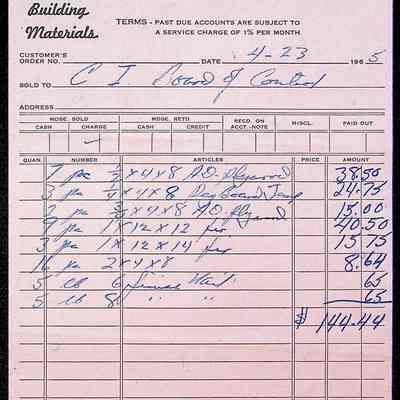 Building
Materials
TERMS - PAST DUE ACCOUNTS ARE SUBJECT TO
A SERVICE CHARGE OF 1% PER MONTH
CUSTOMER'S
ORDER NO. DATE 4-23 1965
SOLD TO C I Board of Control
ADDRESS
MDSE. SOLD MDSE. RETD. REC'D. ON MISCL. PAID OUT
CASH CHARGE CASH CREDIT ACCT.-NOTE
QUAN. NUMBER ARTICLES PRICE AMOUNT
7 pc 1/2 x 4 x 8 A.D. Plywood 38.50
3 pc 1/4 x 4 x 8 Peg Board Temp 24.75
2 pc 3/4 x 4 x 8 A.D. Plywood 15.00
9 pc 1 x 12 x 12 fir 40.50
3 pc 1 x 12 x 14 fir 15.75
16 pc 2 x 4 x 8 8.64
5 lb 6 65
5 lb 8 " " 65
$ 144.44